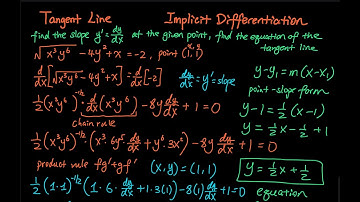 Tangent Line Implicit Differentiation
find the slope y' = dy/dx at the given point, find the equation of the tangent line
√(x³y⁶) - 4y² + x = -2, point (1, 1)
x y
d/dx [√(x³y⁶) - 4y² + x] = d/dx [-2]
dy/dx = y' = slope
1/2 (x³y⁶)^(-1/2) · d/dx (x³y⁶) - 8y dy/dx + 1 = 0
chain rule
1/2 (x³y⁶)^(-1/2) · (x³·6y⁵ dy/dx + y⁶·3x²) - 8y dy/dx + 1 = 0
product rule fg' + gf' (x, y) = (1, 1)
1/2 (1·1)^(-1/2) (1·6·dy/dx + 1·3(1)) - 8(1) dy/dx + 1 = 0
y - y₁ = m(x - x₁)
point-slope form
y - 1 = 1/2 (x - 1)
y = 1/2 x - 1/2 + 1
y = 1/2 x + 1/2
equation